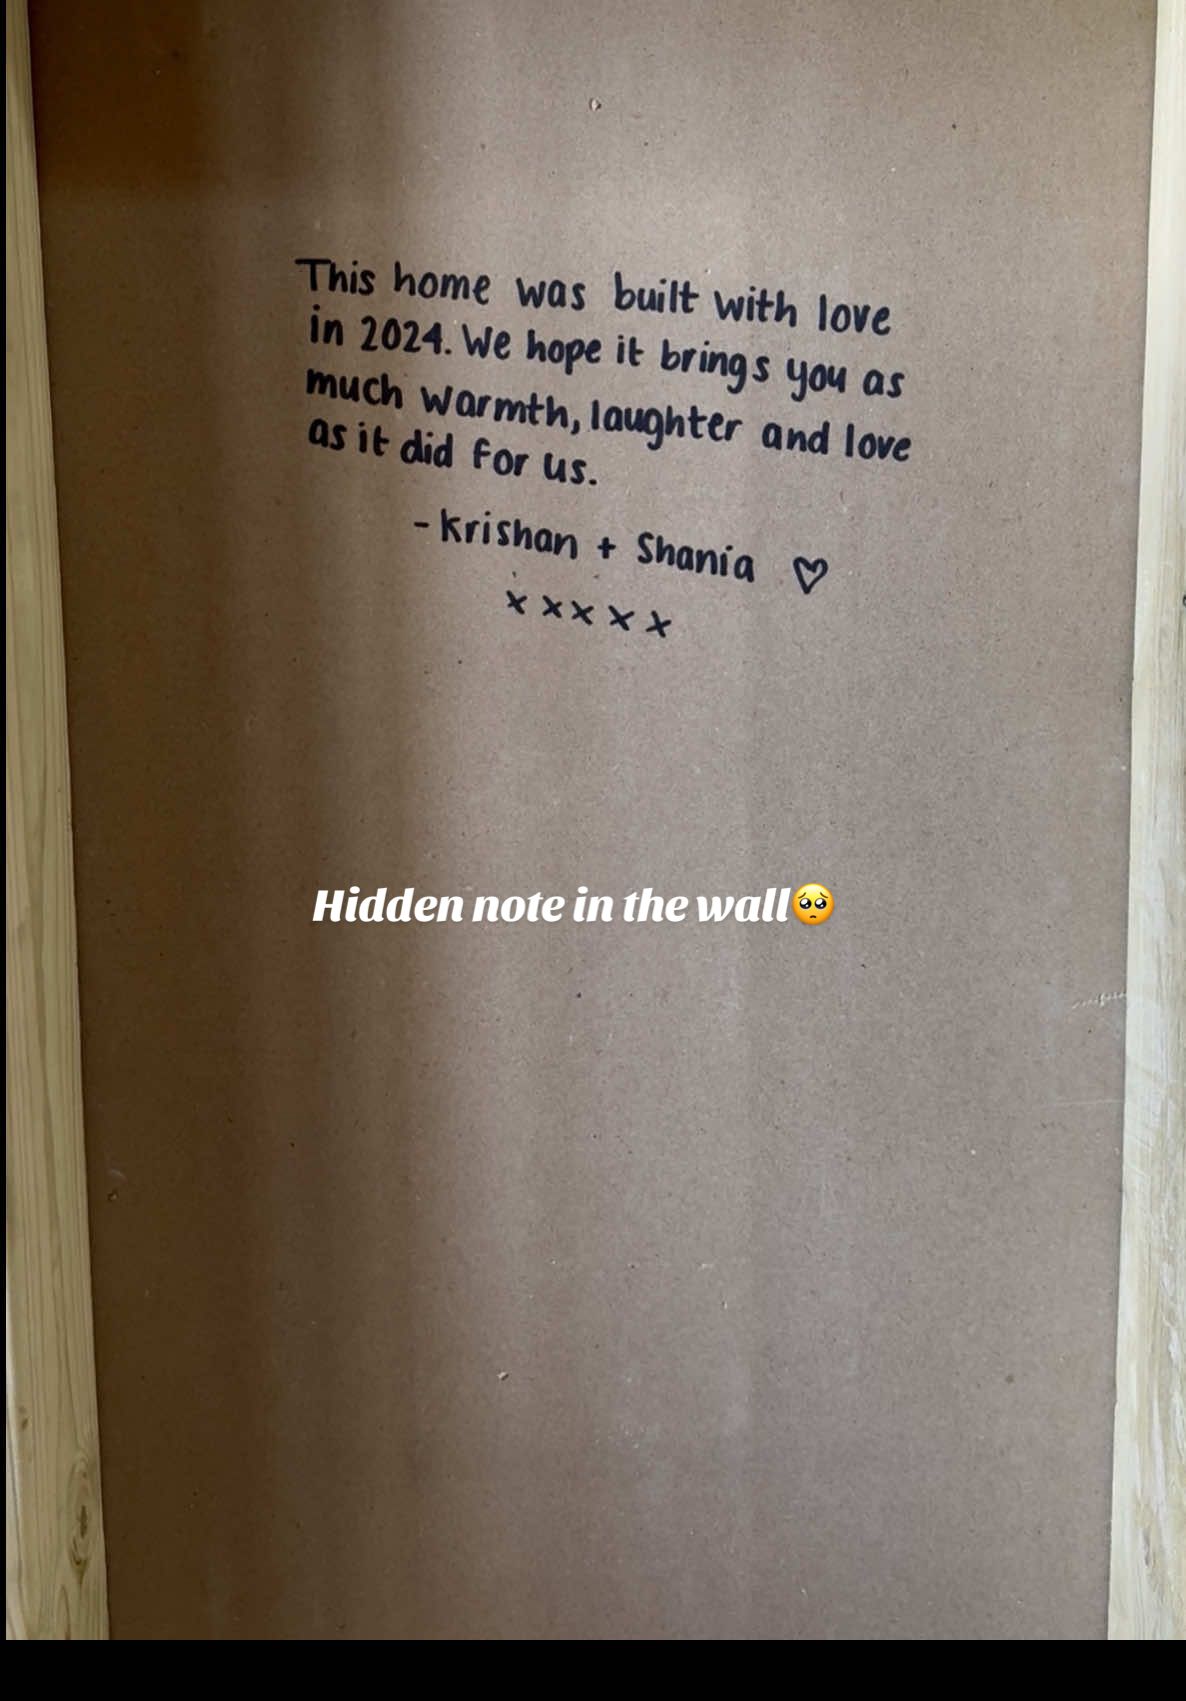 This home was built with love
in 2024. We hope it brings you as
much warmth, laughter and love
as it did for us.
- Krishan + Shania ♡
x x x x x
Hidden note in the wall🥺